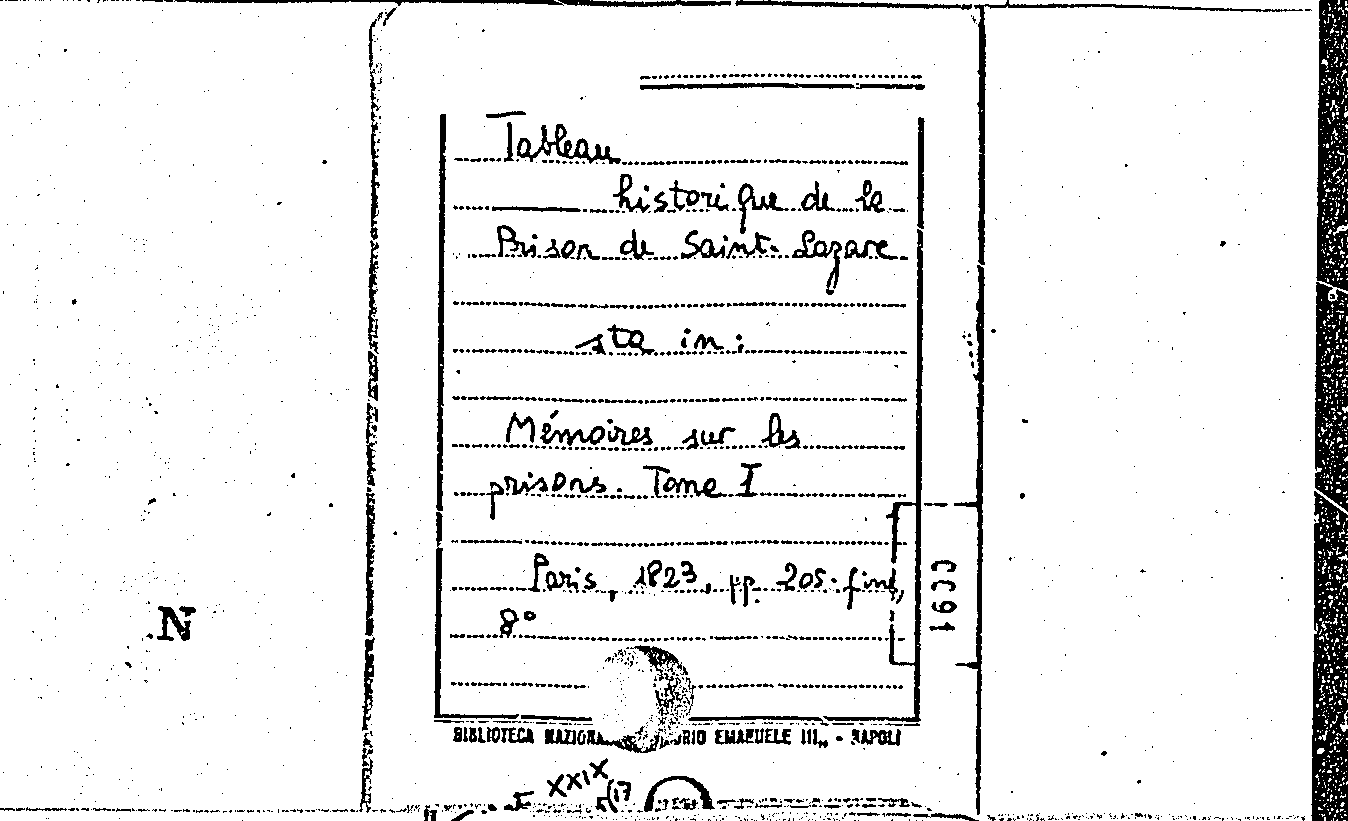 Tableau
historique de la
Prison de Saint-Lazare
sta in:
Mémoires sur les
prisons. Tome I
Paris, 1823, pp. 205-fine,
8°
1933
N
BIBLIOTECA NAZIONA RIO EMANUELE III„ - NAPOLI
XXIX